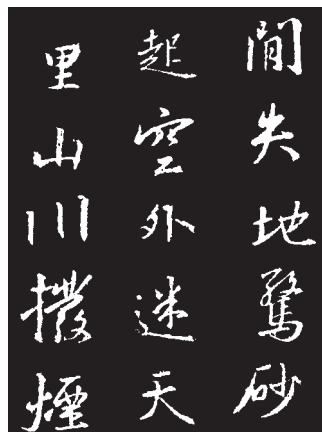 間失地驚砂
起空外迷天
里山川撥煙